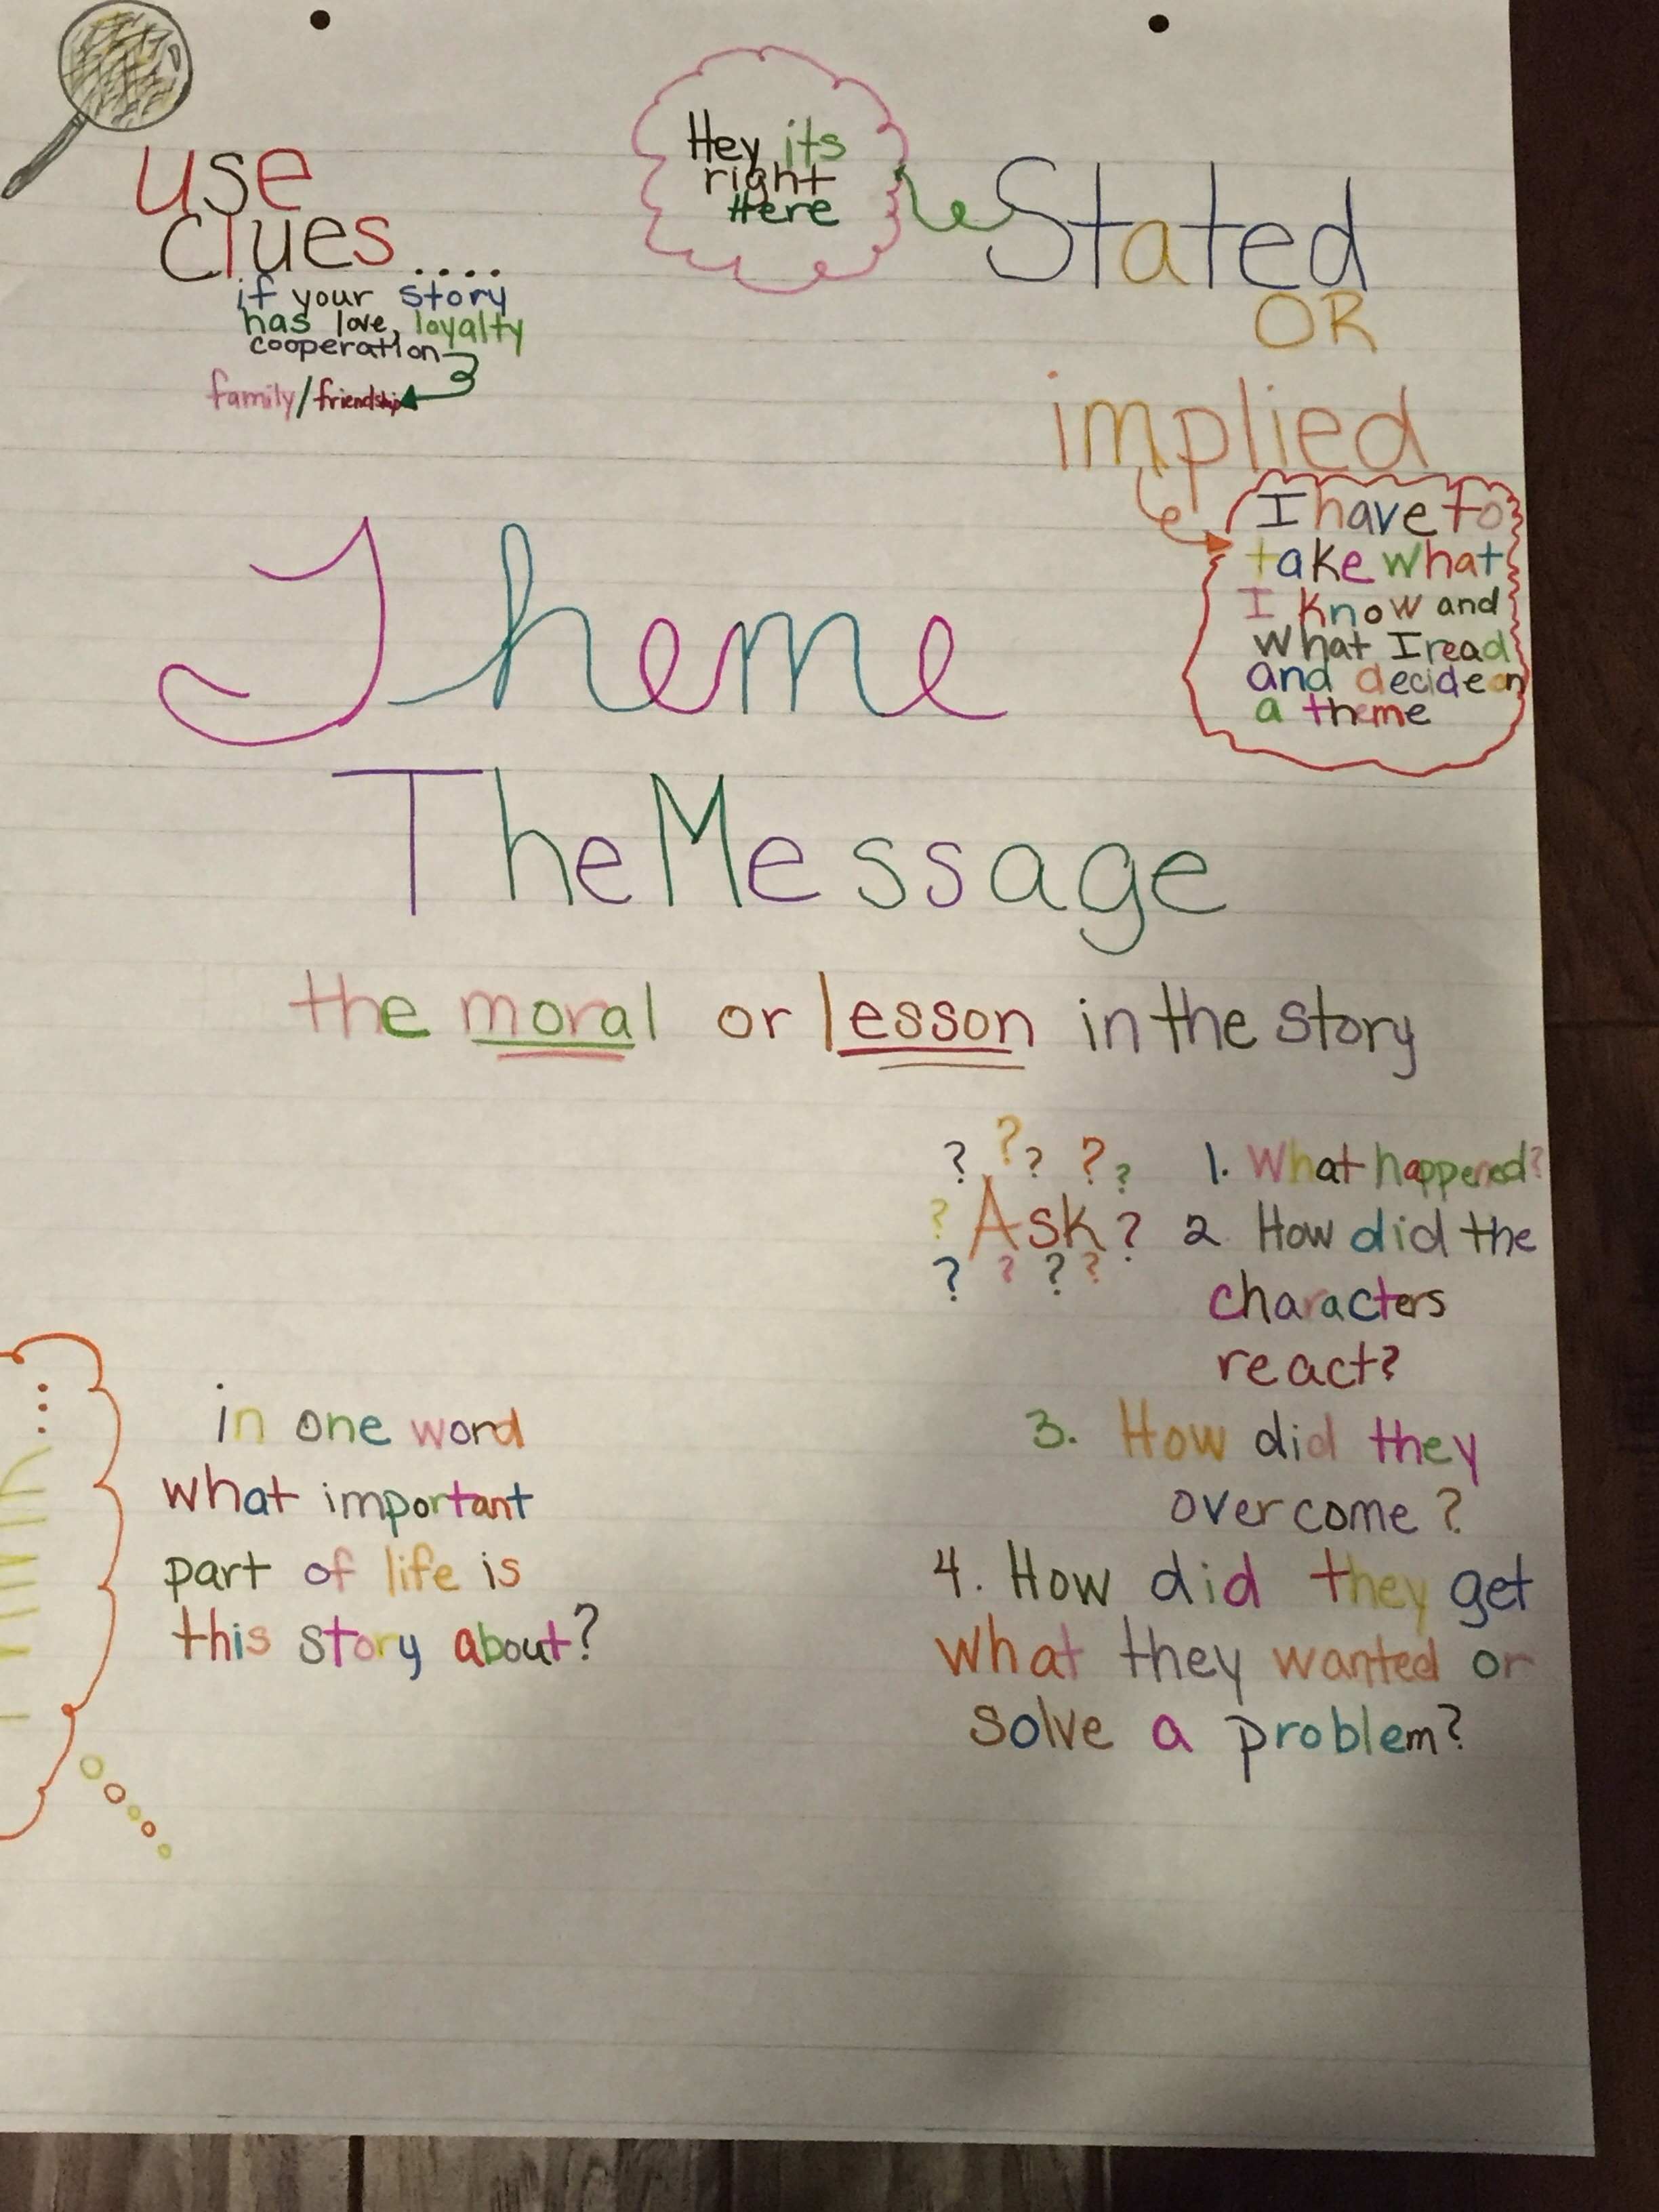 use
clues....
if your story
has love, loyalty
cooperation
family/friendship
Hey its
right
Here
Stated
OR
implied
I have to
take what
I know and
what I read
and decide on
a theme
Theme
The Message
the moral or lesson in the story
? ? ? ? ?
? Ask ?
? ? ? ?
1. What happened?
2 How did the
characters
react?
3. How did they
overcome?
4. How did they get
what they wanted or
solve a problem?
...
in one word
what important
part of life is
this story about?